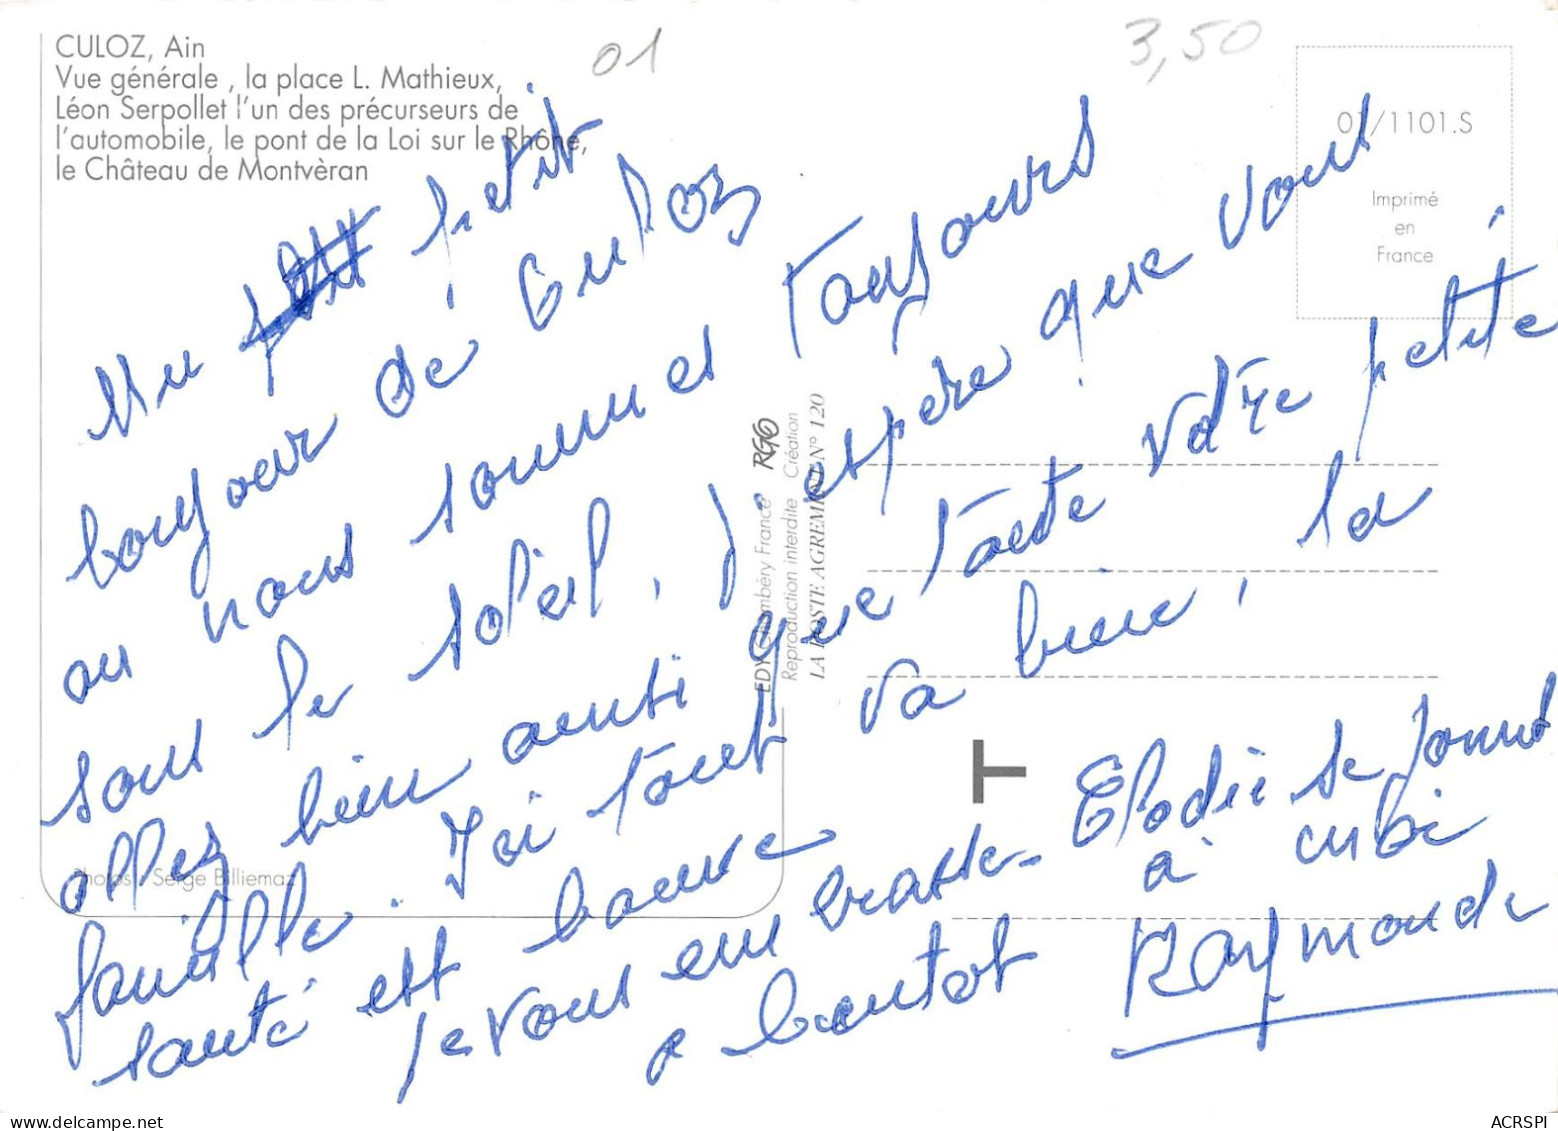 CULOZ, Ain
Vue générale , la place L. Mathieux,
Léon Serpollet l'un des précurseurs de
l'automobile, le pont de la Loi sur le Rhône,
le Château de Montvèran
01
3,50
01/1101.S
Imprimé
en
France
Un petit
bonjour de Culoz
ou nous sommes Toujours
sous le soleil, J'espère que vous
allez bien aussi que toute votre petite
famille. J'ai tout va bien, la
santé est bonne
Je vous embrasse. Elodie se joint
à moi
a bientot Raymonde
EDY Chambéry France RGO
Reproduction interdite Création
LA POSTE AGREMENT N° 120
Photos : Serge Billiemaz
ACRSPI